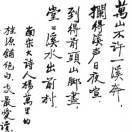 萬山不許一溪奔
攔得溪聲日夜喧
到得前頭山腳盡
堂堂溪水出前村
南宋大詩人楊萬里的
桂源鋪絕句我最愛讀